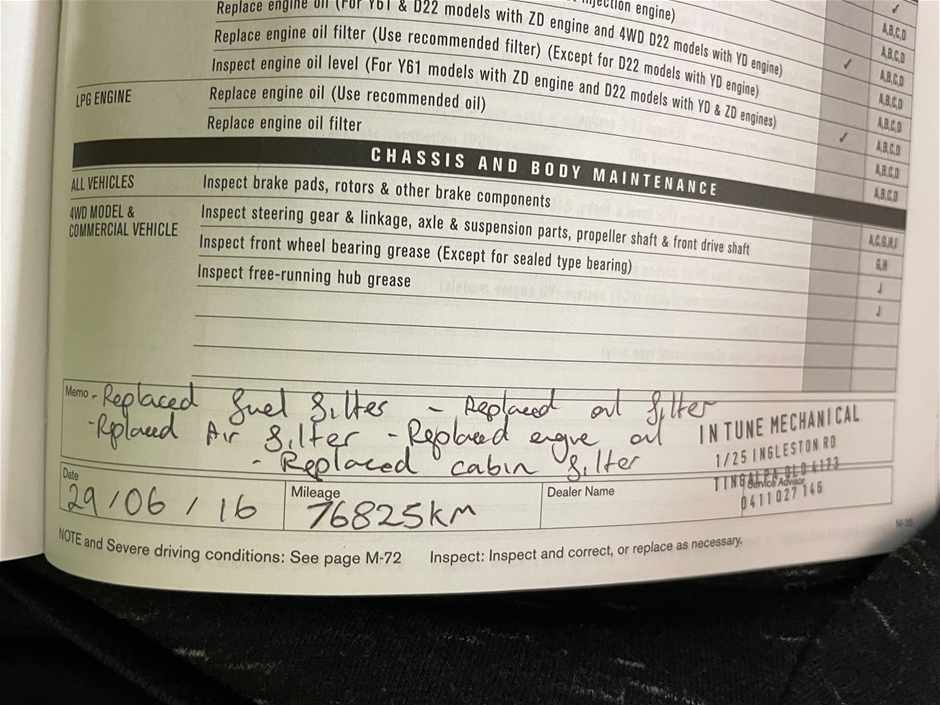 injection engine) ✓
Replace engine oil (For Y61 & D22 models with ZD engine and 4WD D22 models with YD engine) A,B,C,D
Replace engine oil filter (Use recommended filter) (Except for D22 models with YD engine) ✓ A,B,C,D
Inspect engine oil level (For Y61 models with ZD engine and D22 models with YD & ZD engines) A,B,C,D
LPG ENGINE Replace engine oil (Use recommended oil) A,B,C,D
Replace engine oil filter ✓ A,B,C,D
CHASSIS AND BODY MAINTENANCE
ALL VEHICLES Inspect brake pads, rotors & other brake components
4WD MODEL & COMMERCIAL VEHICLE Inspect steering gear & linkage, axle & suspension parts, propeller shaft & front drive shaft A,C,G,H,I
Inspect front wheel bearing grease (Except for sealed type bearing) G,H
Inspect free-running hub grease J
J
Memo - Replaced fuel filter - Replaced oil filter
- Replaced Air filter - Replaced engine oil
- Replaced cabin filter
IN TUNE MECHANICAL
1/25 INGLESTON RD
TINGALPA QLD 4173
Service Advisor
0411 027 146
Date 29/06/16
Mileage 76825km
Dealer Name
NOTE and Severe driving conditions: See page M-72 Inspect: Inspect and correct, or replace as necessary.